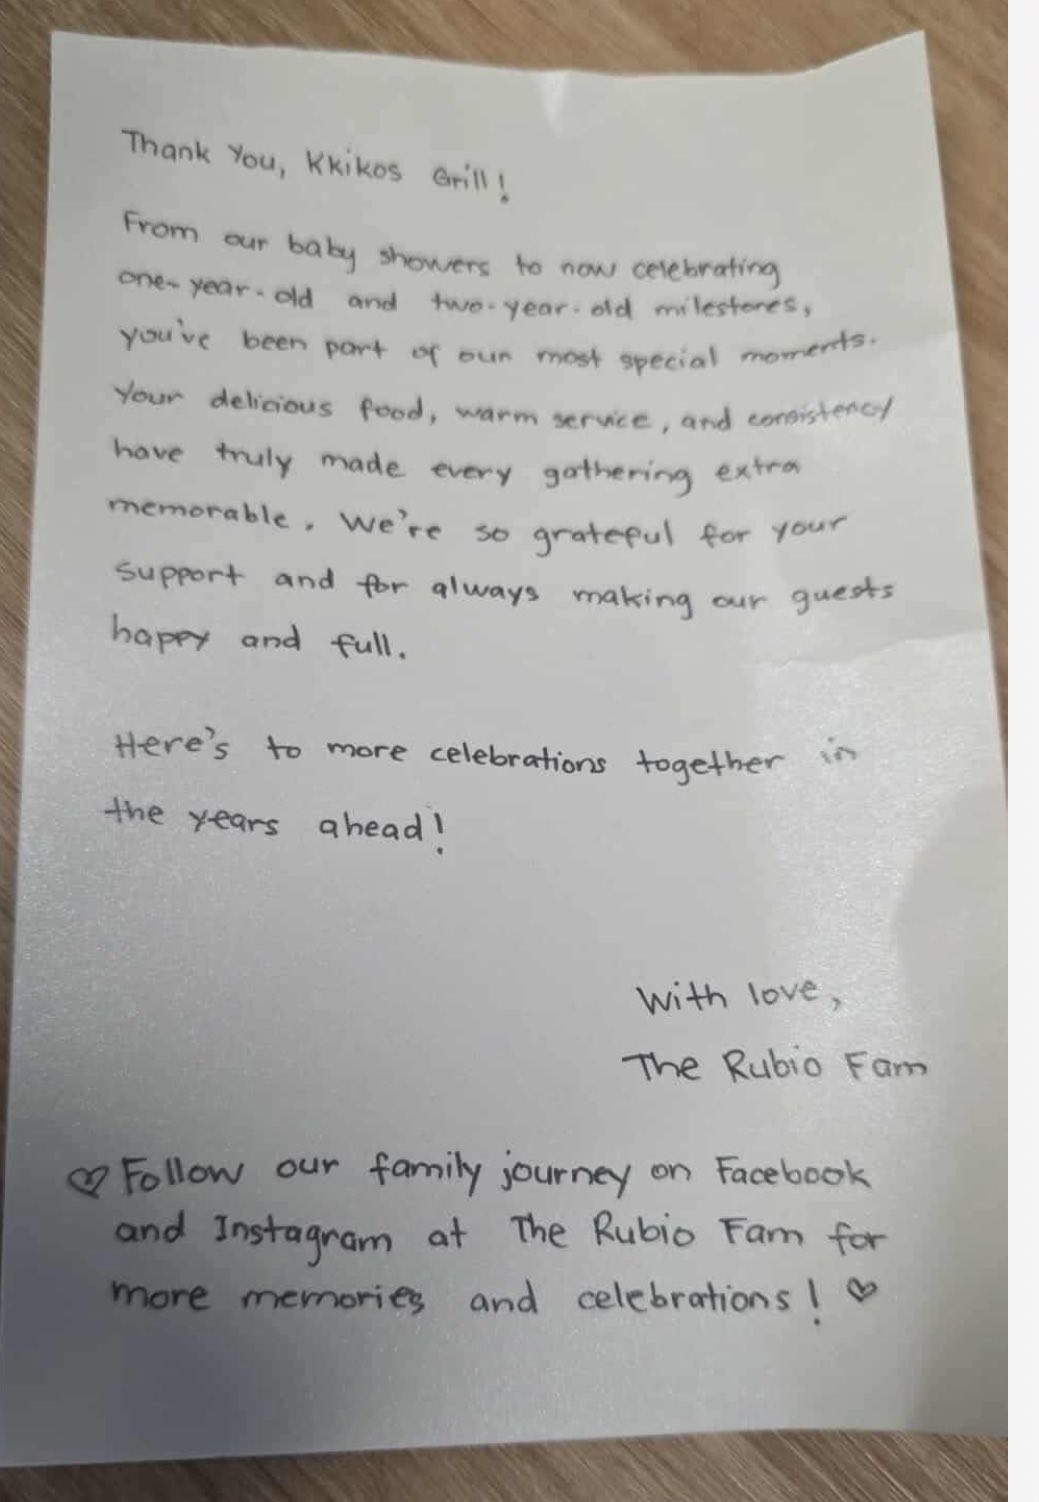 Thank You, Kkikos Grill!
From our baby showers to now celebrating
one-year-old and two-year-old milestones,
you've been part of our most special moments.
Your delicious food, warm service, and consistency
have truly made every gathering extra
memorable. We're so grateful for your
support and for always making our guests
happy and full.
Here's to more celebrations together in
the years ahead!
With love,
The Rubio Fam
♡ Follow our family journey on Facebook
and Instagram at The Rubio Fam for
more memories and celebrations! ♡